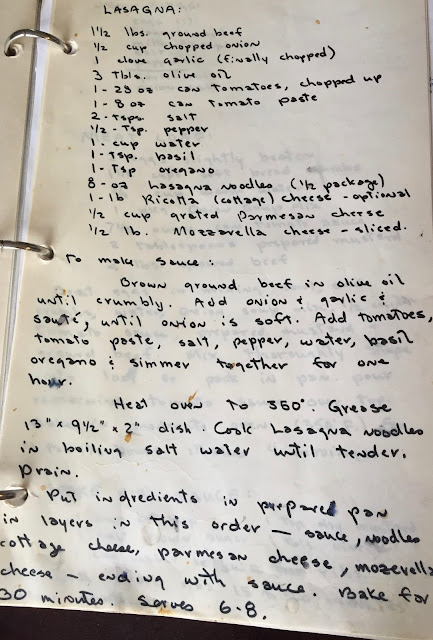 LASAGNA:
1½ lbs. ground beef
½ cup chopped onion
1 clove garlic (finally chopped)
3 Tbls. olive oil
1 - 29 oz can Tomatoes, chopped up
1 - 8 oz can Tomato paste
2 - Tsps. salt
½ - Tsp. pepper
1 - cup water
1 - Tsp. basil
1 - Tsp oregano
8 - oz Lasagna Noodles (½ package)
1 - lb Ricotta (cottage) cheese - optional
½ cup grated Parmesan cheese
½ lb. Mozzarella cheese - sliced.
To make sauce:
Brown ground beef in olive oil
until crumbly. Add onion & garlic &
sauté, until onion is soft. Add tomatoes,
tomato paste, salt, pepper, water, basil
oregano & simmer together for one
hour.
Heat oven to 350°. Grease
13" x 9½" x 2" dish. Cook Lasagna Noodles
in boiling salt water until tender.
Drain.
Put ingredients in prepared pan
in layers in this order — sauce, noodles
cottage cheese, parmesan cheese, mozerella
cheese — ending with sauce. Bake for
30 minutes. Serves 6-8.